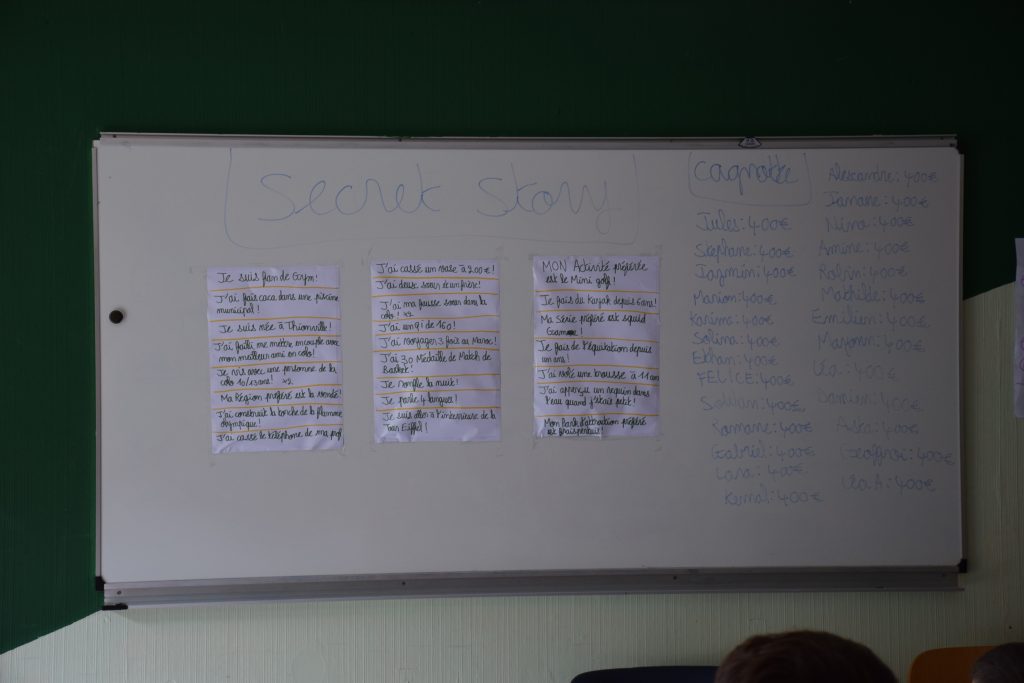 Secret Story
Je suis fan de Gym!
J'ai fais caca dans une piscine
municipal!
Je suis née à Thionville!
J'ai failli me mettre en couple avec
mon meilleur ami en colo!
Je vis avec une personne de la
colo 10/13ans! x2
Ma Région préféré est la vendé!
J'ai construit la torche de la flamme
olympique!
J'ai cassé le téléphone de ma prof
J'ai cassé un vase à 200€!
J'ai deux sœurs et un frère!
J'ai ma fausse sœur dans la
colo! x2
J'ai un qi de 160!
J'ai voyager 3 fois au Maroc!
J'ai 30 Médaille de Match de
Basket!
Je ronfle la nuit!
Je parle 4 langues!
Je suis aller à l'intérieure de la
Tour Eiffel!
MON Activité préférée
est le Mini golf!
Je fais du Kayak depuis 6ans!
Ma Série préféré est squid
Game!
Je fais de l'équitation depuis
un ans!
J'ai volé une trousse à 11 ans
J'ai apperçu un requin dans
l'eau quand j'étais petit!
Mon Park d'attraction préféré
est
cagnotte
Jules: 400€
Stephane: 400€
Jazmin: 400€
Marion: 400€
Karima: 400€
Solina: 400€
Ethan: 400€
FELICE: 400€
Sohan: 400€
Ramane: 400€
Gabriel: 400€
Lana: 400€
Kemal: 400€
Alexandre: 400€
Imane: 400€
Nima: 400€
Amine: 400€
400€
Mathilde: 400€
Emilien: 400€
Maronn: 400€
Léa: 400€
Damien: 400€
Adra: 400€
Geoffroi: 400€
Léa.A: 400€